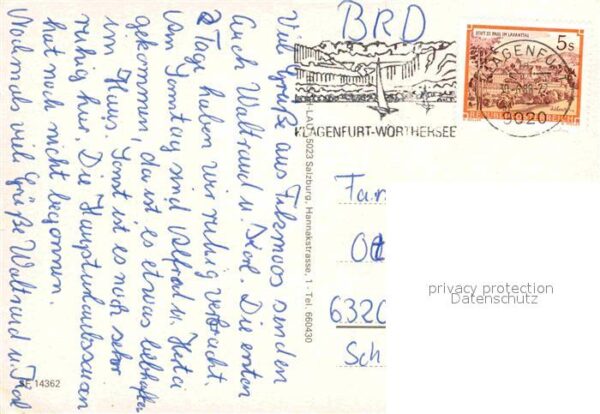 Viel Grüße aus Filzmoos senden
Euch Waltraud u. Karl. Die ersten
2 Tage haben wir ruhig verbracht.
Am Sonntag sind Alfred u. Herta
gekommen, da ist es etwas lebhafter
im Haus. Sonst ist es noch sehr
ruhig hier. Die Haupturlaubssaison
hat noch nicht begonnen.
Nochmals viel Grüße Waltraud u. Karl
SF 14362
5023 Salzburg, Hannakstrasse, 1 - Tel. 660430
BRD
KLAGENFURT-WÖRTHERSEE
STIFT ST. PAUL IM LAVANTTAL
5 S
REPUBLIK ÖSTERREICH
KLAGENFURT
9020
Fa
6320
Sch
privacy protection
Datenschutz